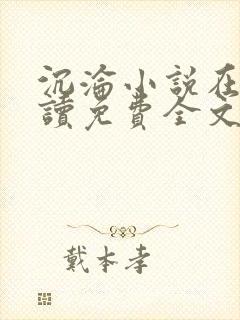 沉淪小説在
讀免費全文
戴本孝